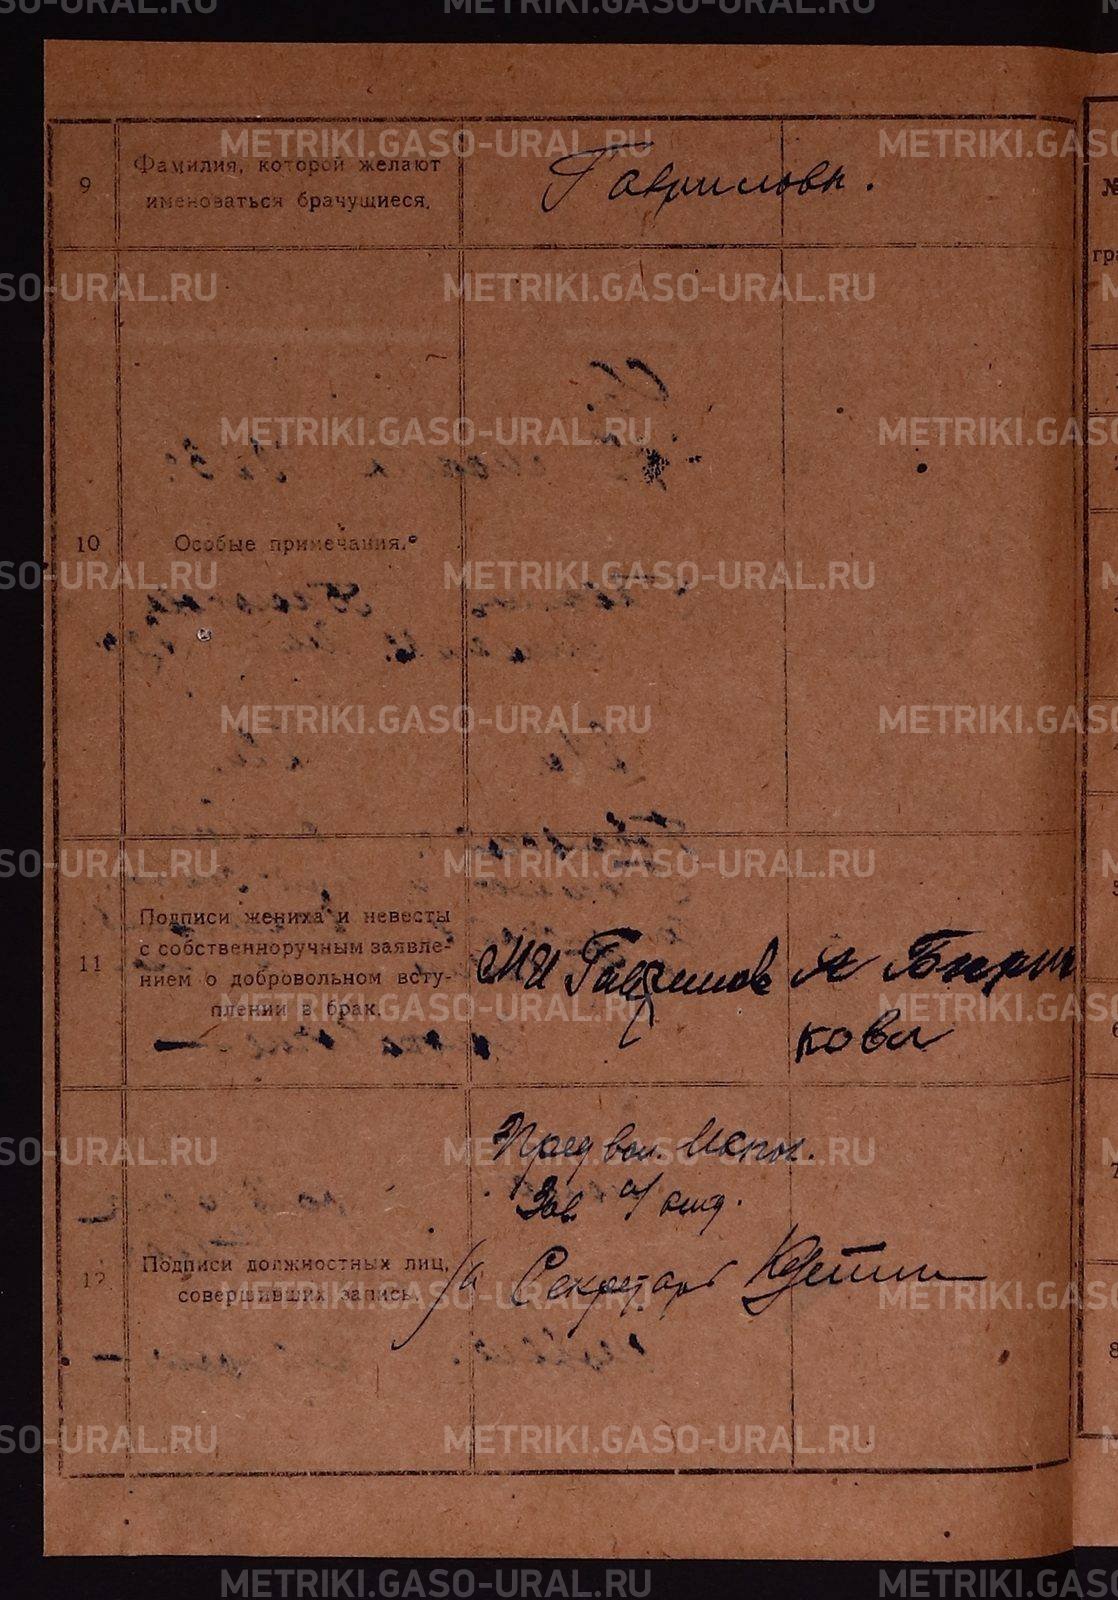 METRIKI.GASO-URAL.RU
9
Фамилия, которой желают
именоваться брачущиеся.
Гавриловы.
№
10
Особые примечания.
11
Подписи жениха и невесты
с собственноручным заявле-
нием о добровольном всту-
плении в брак.
МИ Гаврилов
А Бирю
кова
12
Подписи должностных лиц,
совершивших запись.
Пред вол. Испол.
Зав. отд.
Секретарь